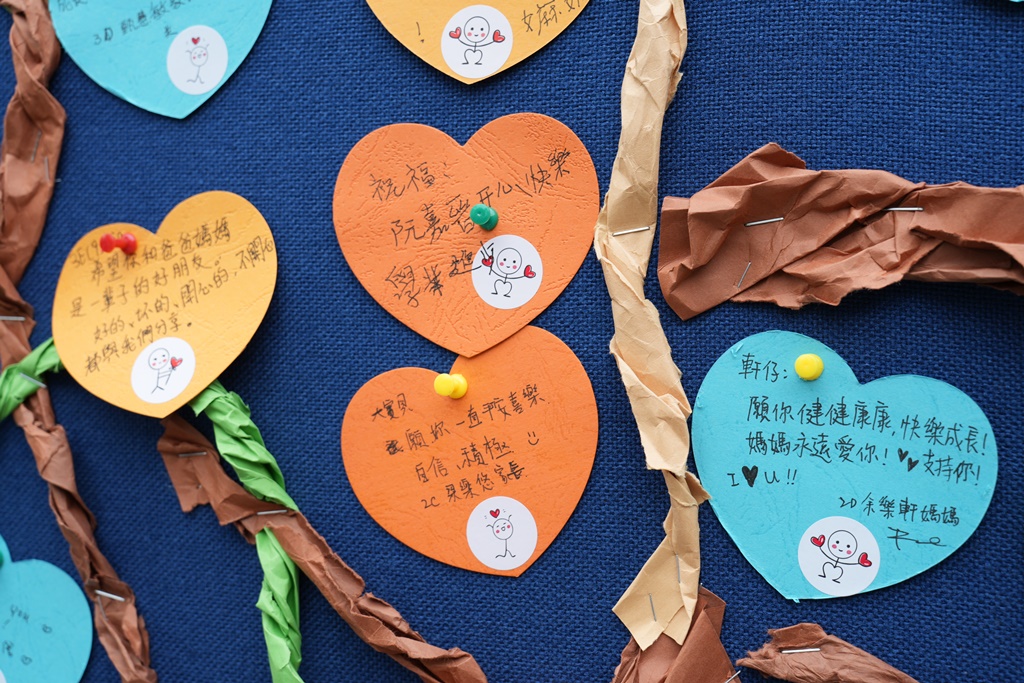 3D
!
祝福：
阮嘉
開心、快樂
學業進
希望你和爸爸媽媽
是一輩子的好朋友。
好的、坏的、開心的，不開心
都與我們分享。
大寶貝
願你一直都喜樂
自信、積極
2C 家長
軒仔：
願你健健康康，快樂成長！
媽媽永遠愛你！♥♥支持你！
I ♥ U !!
2D 余樂軒媽媽
you